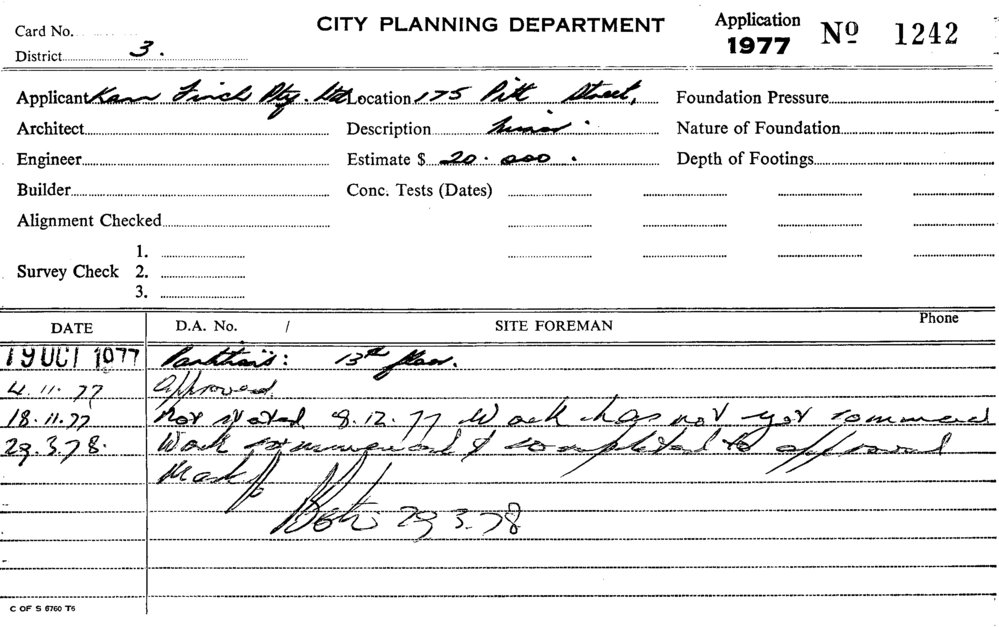 CITY PLANNING DEPARTMENT
Application 1977 Nº 1242
Card No.
District 3.
Applicant Kann Finch Pty. Ltd Location 175 Pitt Street, Foundation Pressure
Architect Description Minor. Nature of Foundation
Engineer Estimate $ 20.000. Depth of Footings
Builder Conc. Tests (Dates)
Alignment Checked
Survey Check 1.
2.
3.
DATE D.A. No. / SITE FOREMAN Phone
19 OCT 1977 Partitions: 13th floor.
4.11.77 Approved
18.11.77 Not started 8.12.77 Work has not yet commenced
29.3.78. Work commenced & completed to approved
29 3.78
C OF S 6760 T6